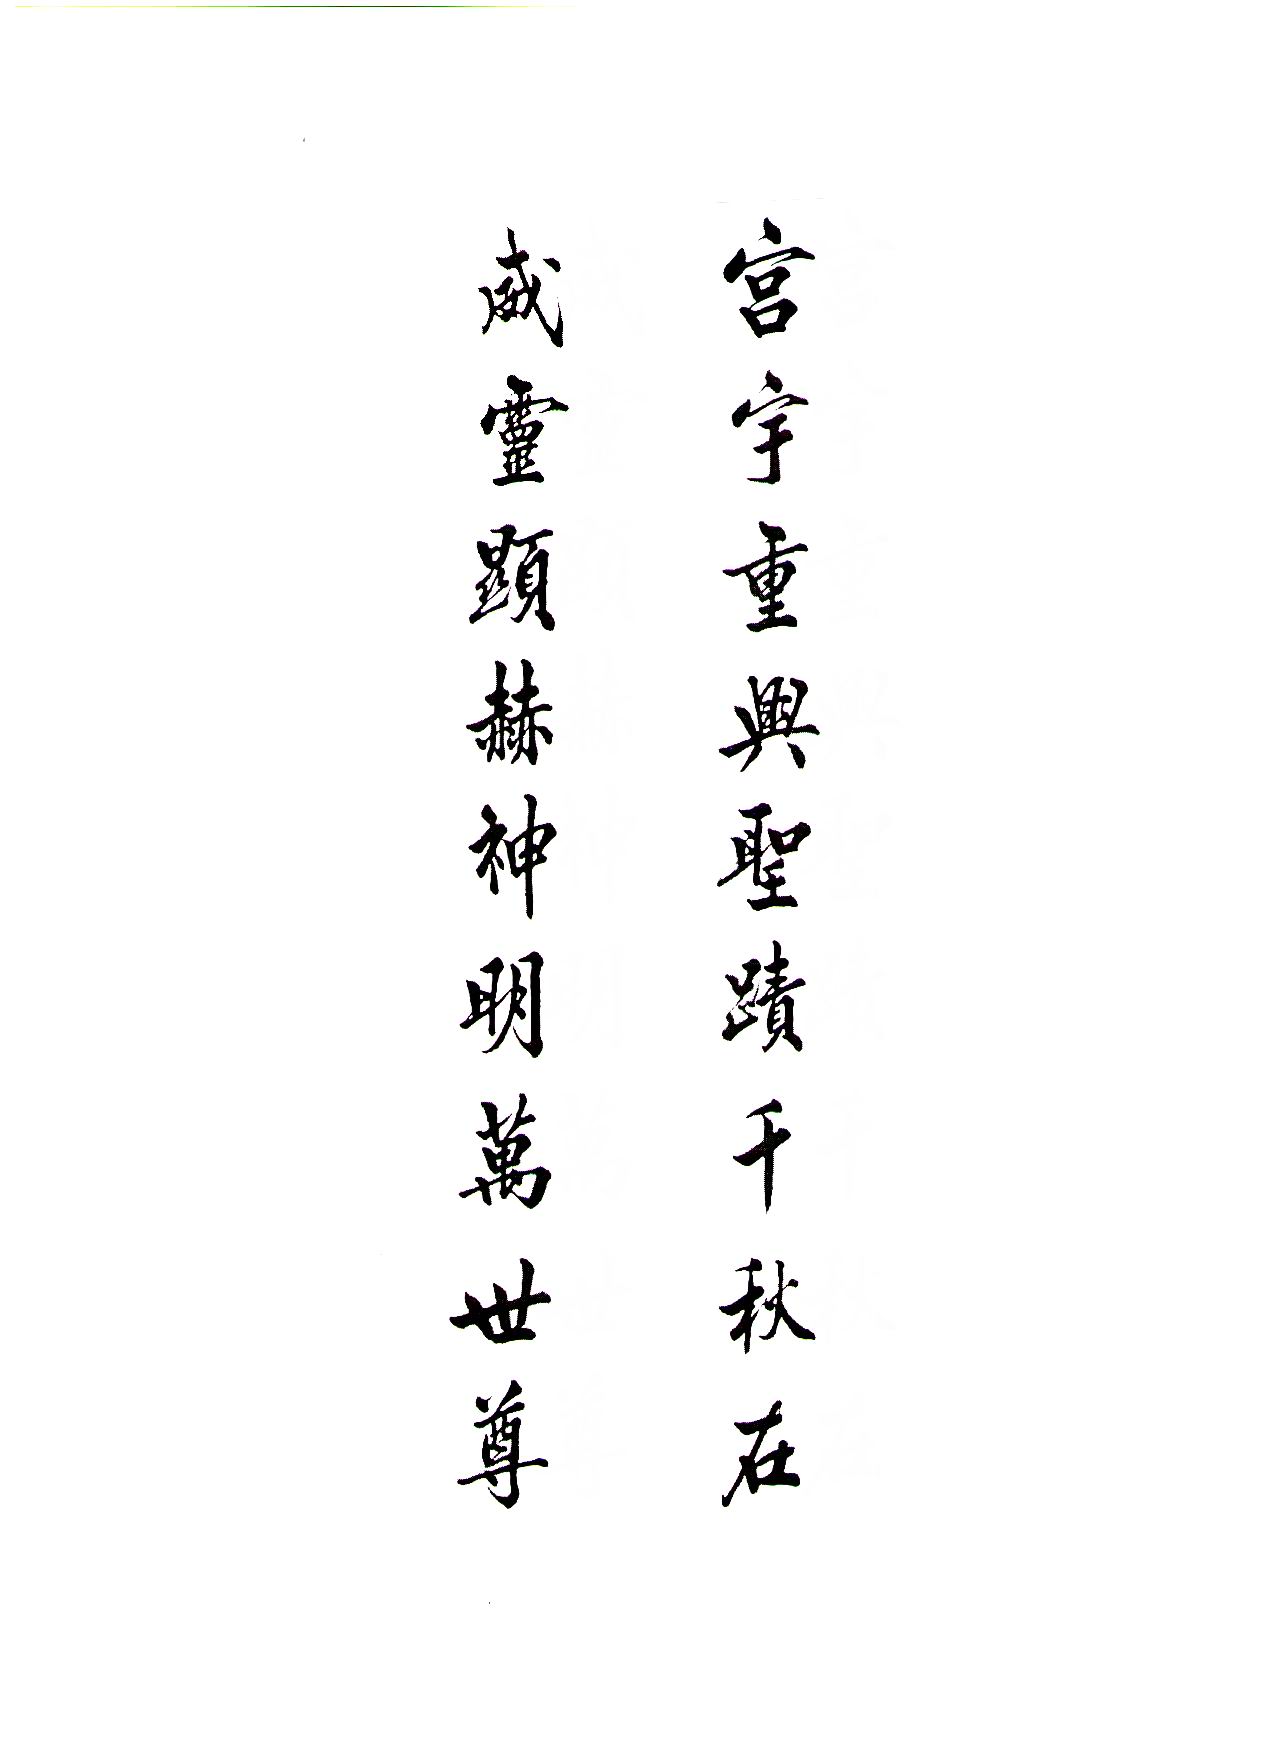 宮宇重興聖蹟千秋在
威靈顯赫神明萬世尊